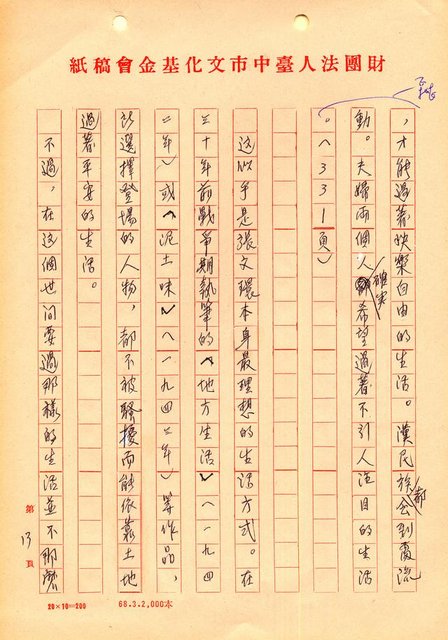 財團法人臺中市文化基金會稿紙
，才能過著快樂自由的生活。漢民族都會到處流
動。夫婦兩個人確實希望過著不引人注目的生活
。（331頁）
這似乎是張文環本身最理想的生活方式。在
三十年前戰爭期執筆的〈地方生活〉（一九四
二年）或〈泥土味〉（一九四三年）等作品，
所選擇登場的人物，都不被騷擾而能依靠土地
過著平安的生活。
不過，在这個世间要過那樣的生活並不那麼
第13頁
20×10=200
68.3.2,000本